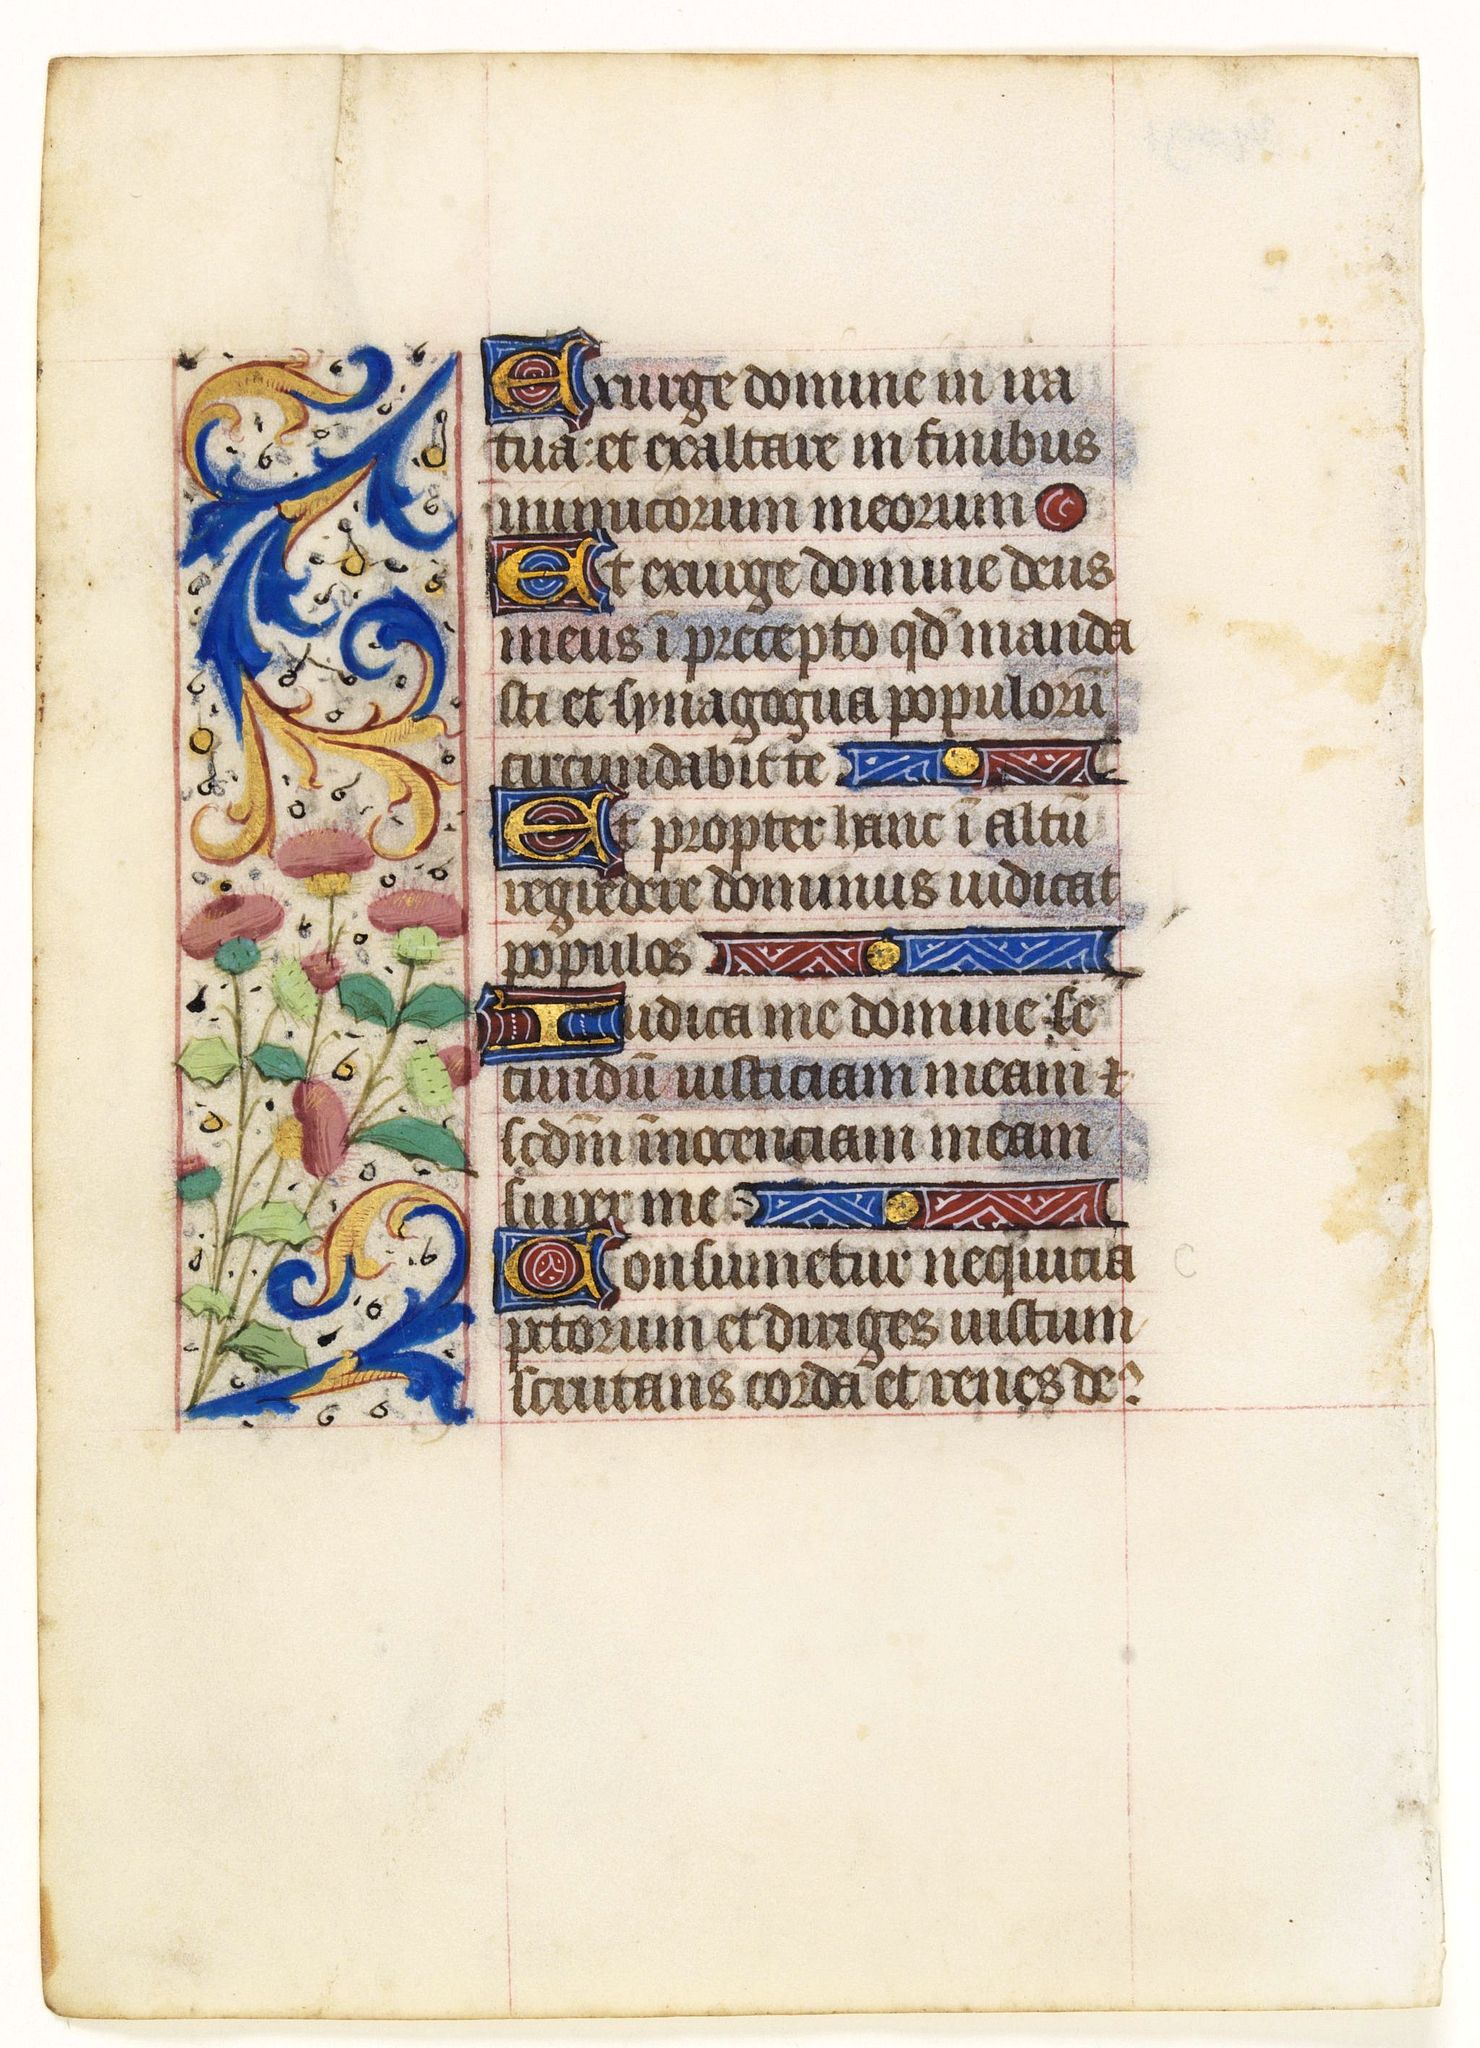 Exurge domine in ira
tua: et exaltare in finibus
inimicorum meorum
Et exurge domine deus
meus ī precepto qď manda
sti et synagogua populorū
circundabit te
Et propter hanc ī altū
regredere dominus iudicat
populos
Iudica me domine se
cundū iusticiam meam ⁊
scdm̄ īnocenciam meam
super me
Consumetur nequicia
pctorum et diriges iustum
scrutans corda et renes de?